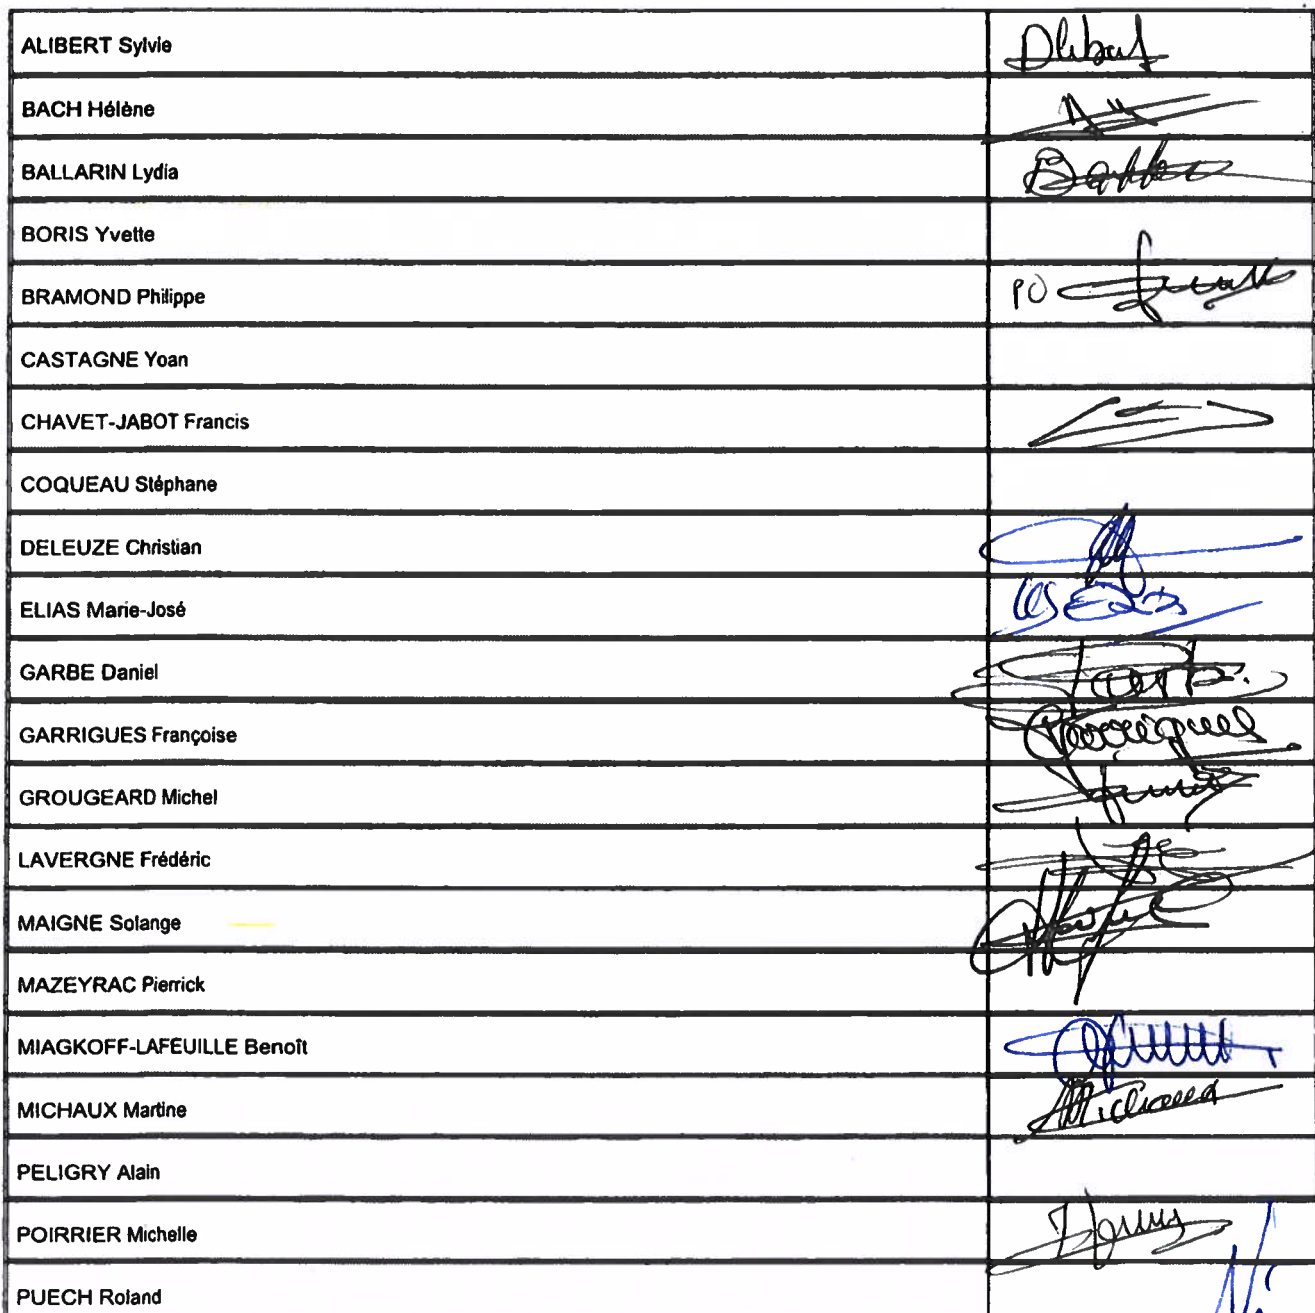 ALIBERT Sylvie Alibert
BACH Hélène
BALLARIN Lydia
BORIS Yvette
BRAMOND Philippe PO
CASTAGNE Yoan
CHAVET-JABOT Francis
COQUEAU Stéphane
DELEUZE Christian
ELIAS Marie-José
GARBE Daniel
GARRIGUES Françoise Garrigues
GROUGEARD Michel
LAVERGNE Frédéric
MAIGNE Solange
MAZEYRAC Pierrick
MIAGKOFF-LAFEUILLE Benoît
MICHAUX Martine Michaux
PELIGRY Alain
POIRRIER Michelle
PUECH Roland